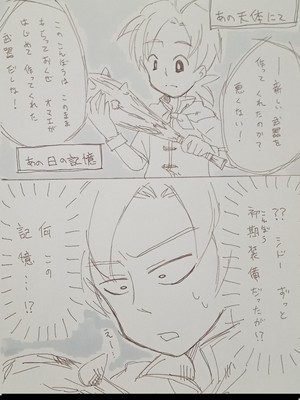 あの天体にて
──新しい武器を
作てくれたのか?
悪くない!
このこんぼうは このまま
もらっておくぜ オマエが
はじめて 作ってくれた
武器だしな!
あの日の記憶
?? シドー ずっと
こんぼう
初期装備だったが!?
えー…
何 この
記憶…!?